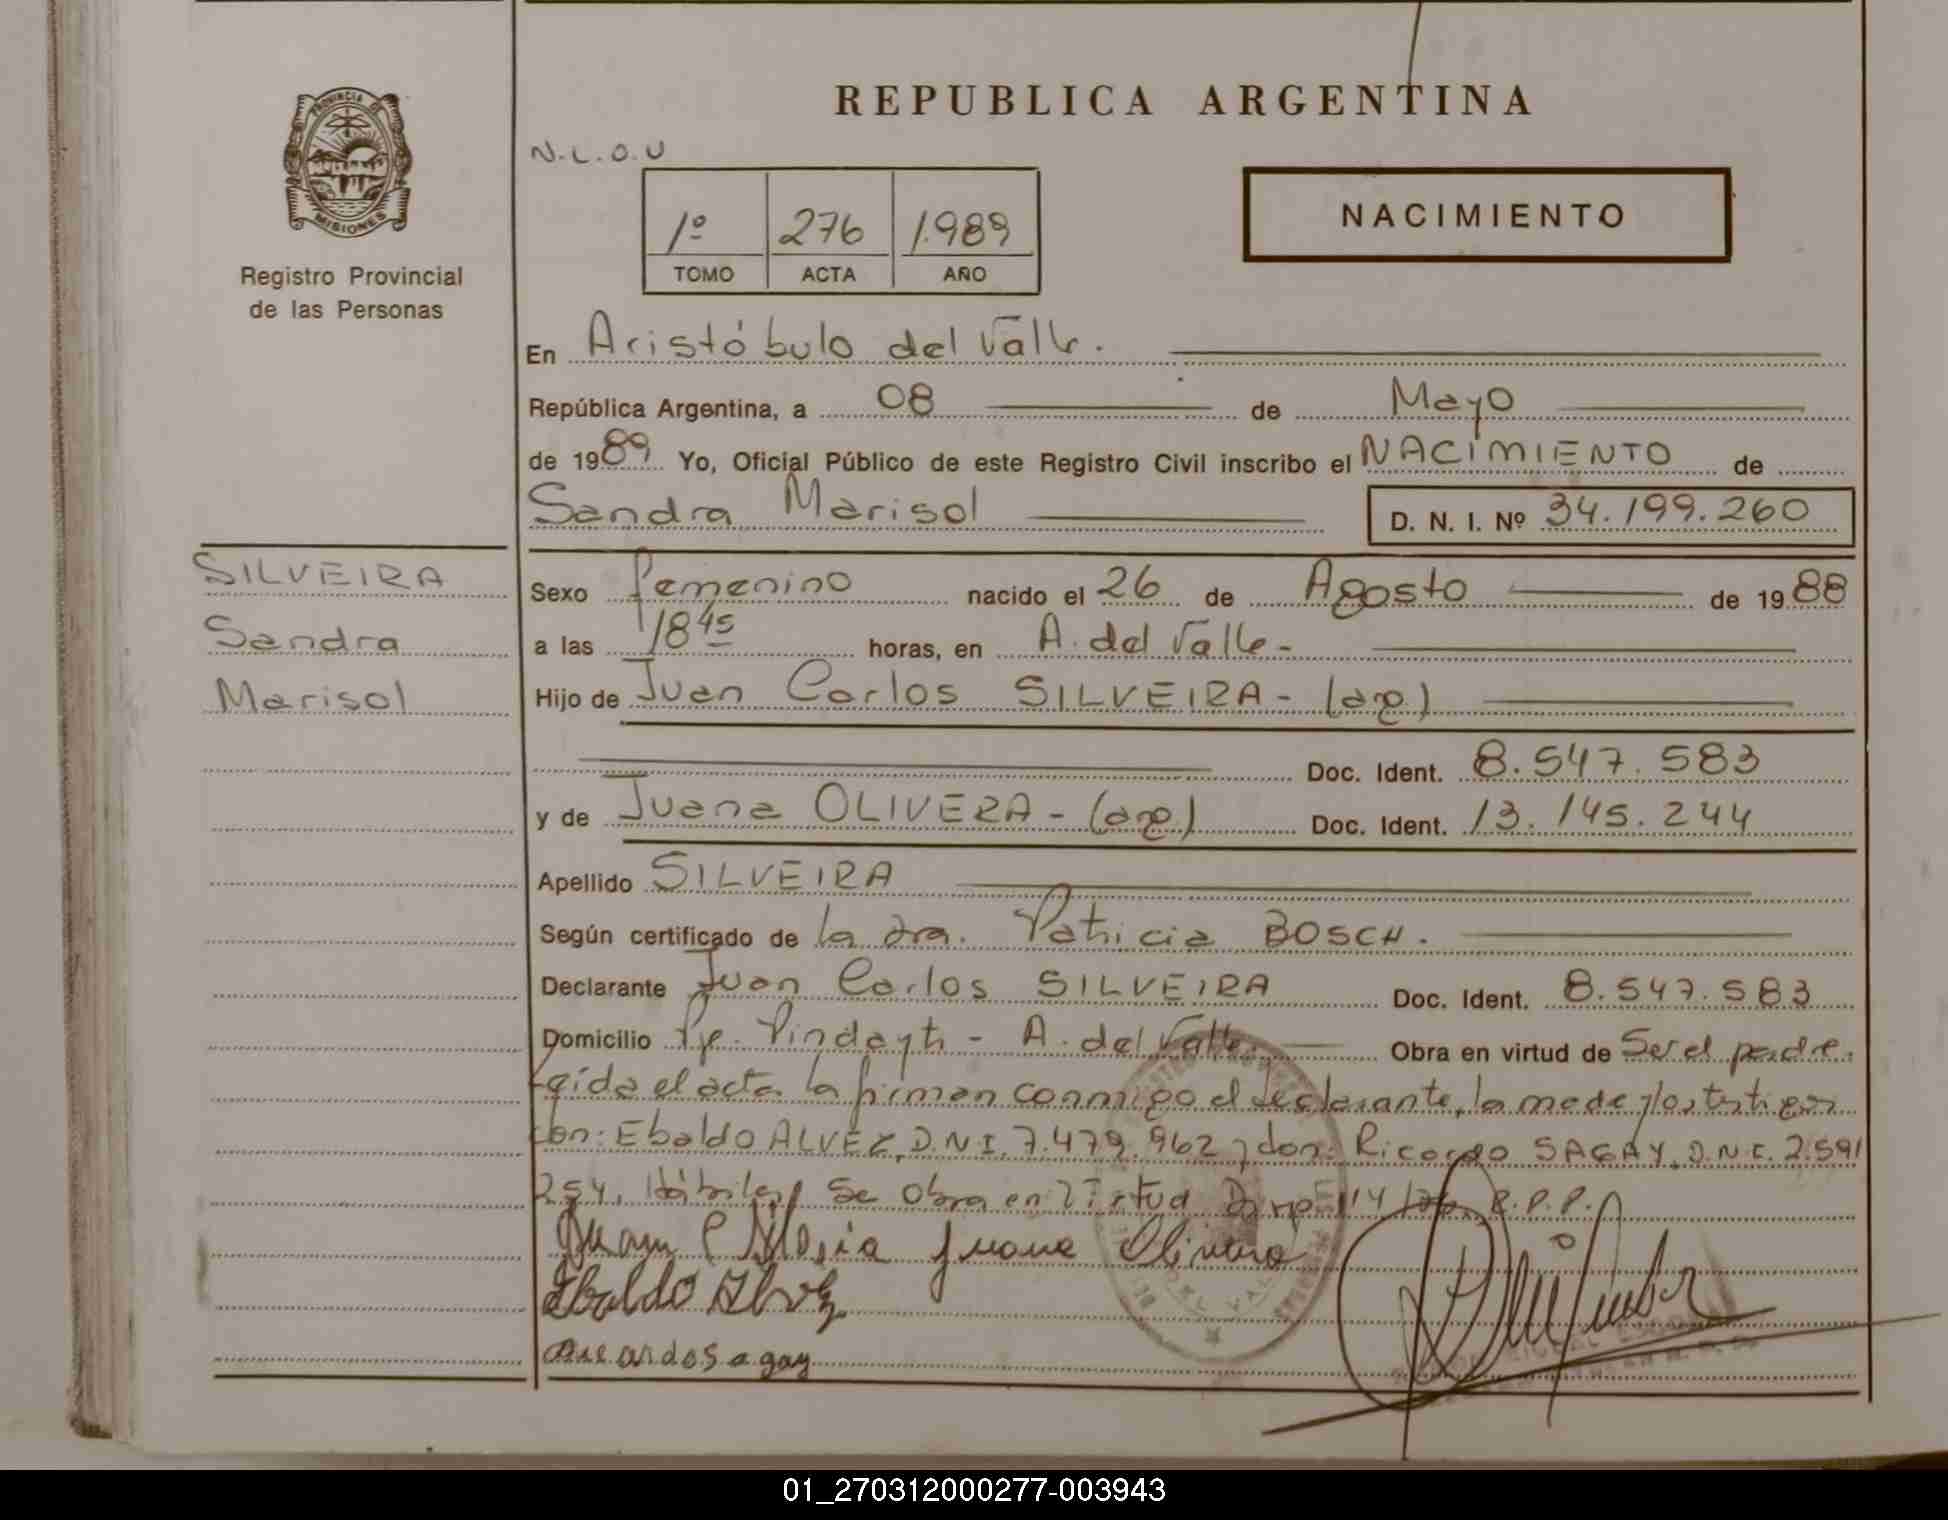 PROVINCIA DE
MISIONES
Registro Provincial
de las Personas
REPUBLICA ARGENTINA
N.L.O.U
1º 276 1.989
TOMO ACTA AÑO
NACIMIENTO
En Aristóbulo del Valle.
República Argentina, a 08 de Mayo
de 1989 Yo, Oficial Público de este Registro Civil inscribo el NACIMIENTO de
Sandra Marisol D. N. I. Nº 34.199.260
SILVEIRA
Sandra
Marisol
Sexo femenino nacido el 26 de Agosto de 1988
a las 18 45 horas, en A. del Valle-
Hijo de Juan Carlos SILVEIRA- (arg)
Doc. Ident. 8.547.583
y de Juana OLIVERA- (arg) Doc. Ident. 13.145.244
Apellido SILVEIRA
Según certificado de la dra. Patricia BOSCH.
Declarante Juan Carlos SILVEIRA Doc. Ident. 8.547.583
Domicilio Pje. Pindayti - A. del Valle. Obra en virtud de Ser el padre.
Leída el acta la firman conmigo el declarante, la madre y los testigos
don: Ebaldo ALVEZ, D.N.I. 7.479.962 y don: Ricardo SAGAY, D.N.I. 2.591
254. Hábiles/ Se obra en Virtud 114/ R.P.P.
Juan C Juana Olivera
Ebaldo Alvez
Ricardo Sagay
01_270312000277-003943